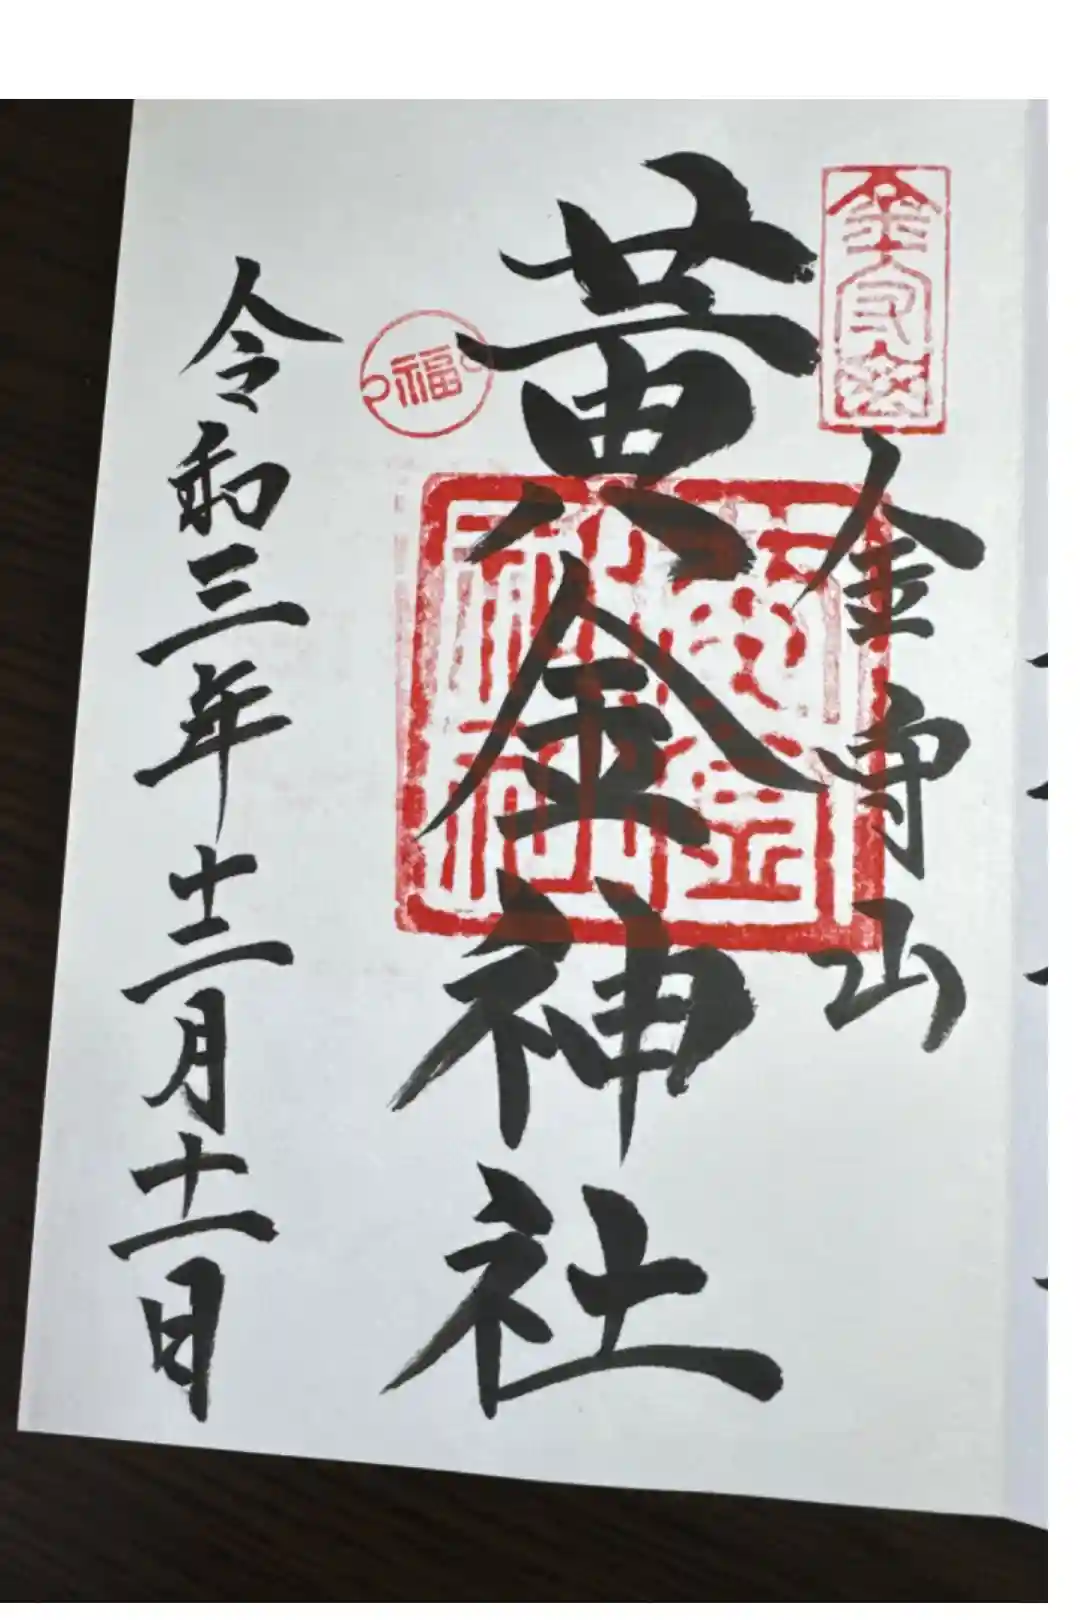 金
山
黄金神社
黄金神社
福
令和三年十二月十一日